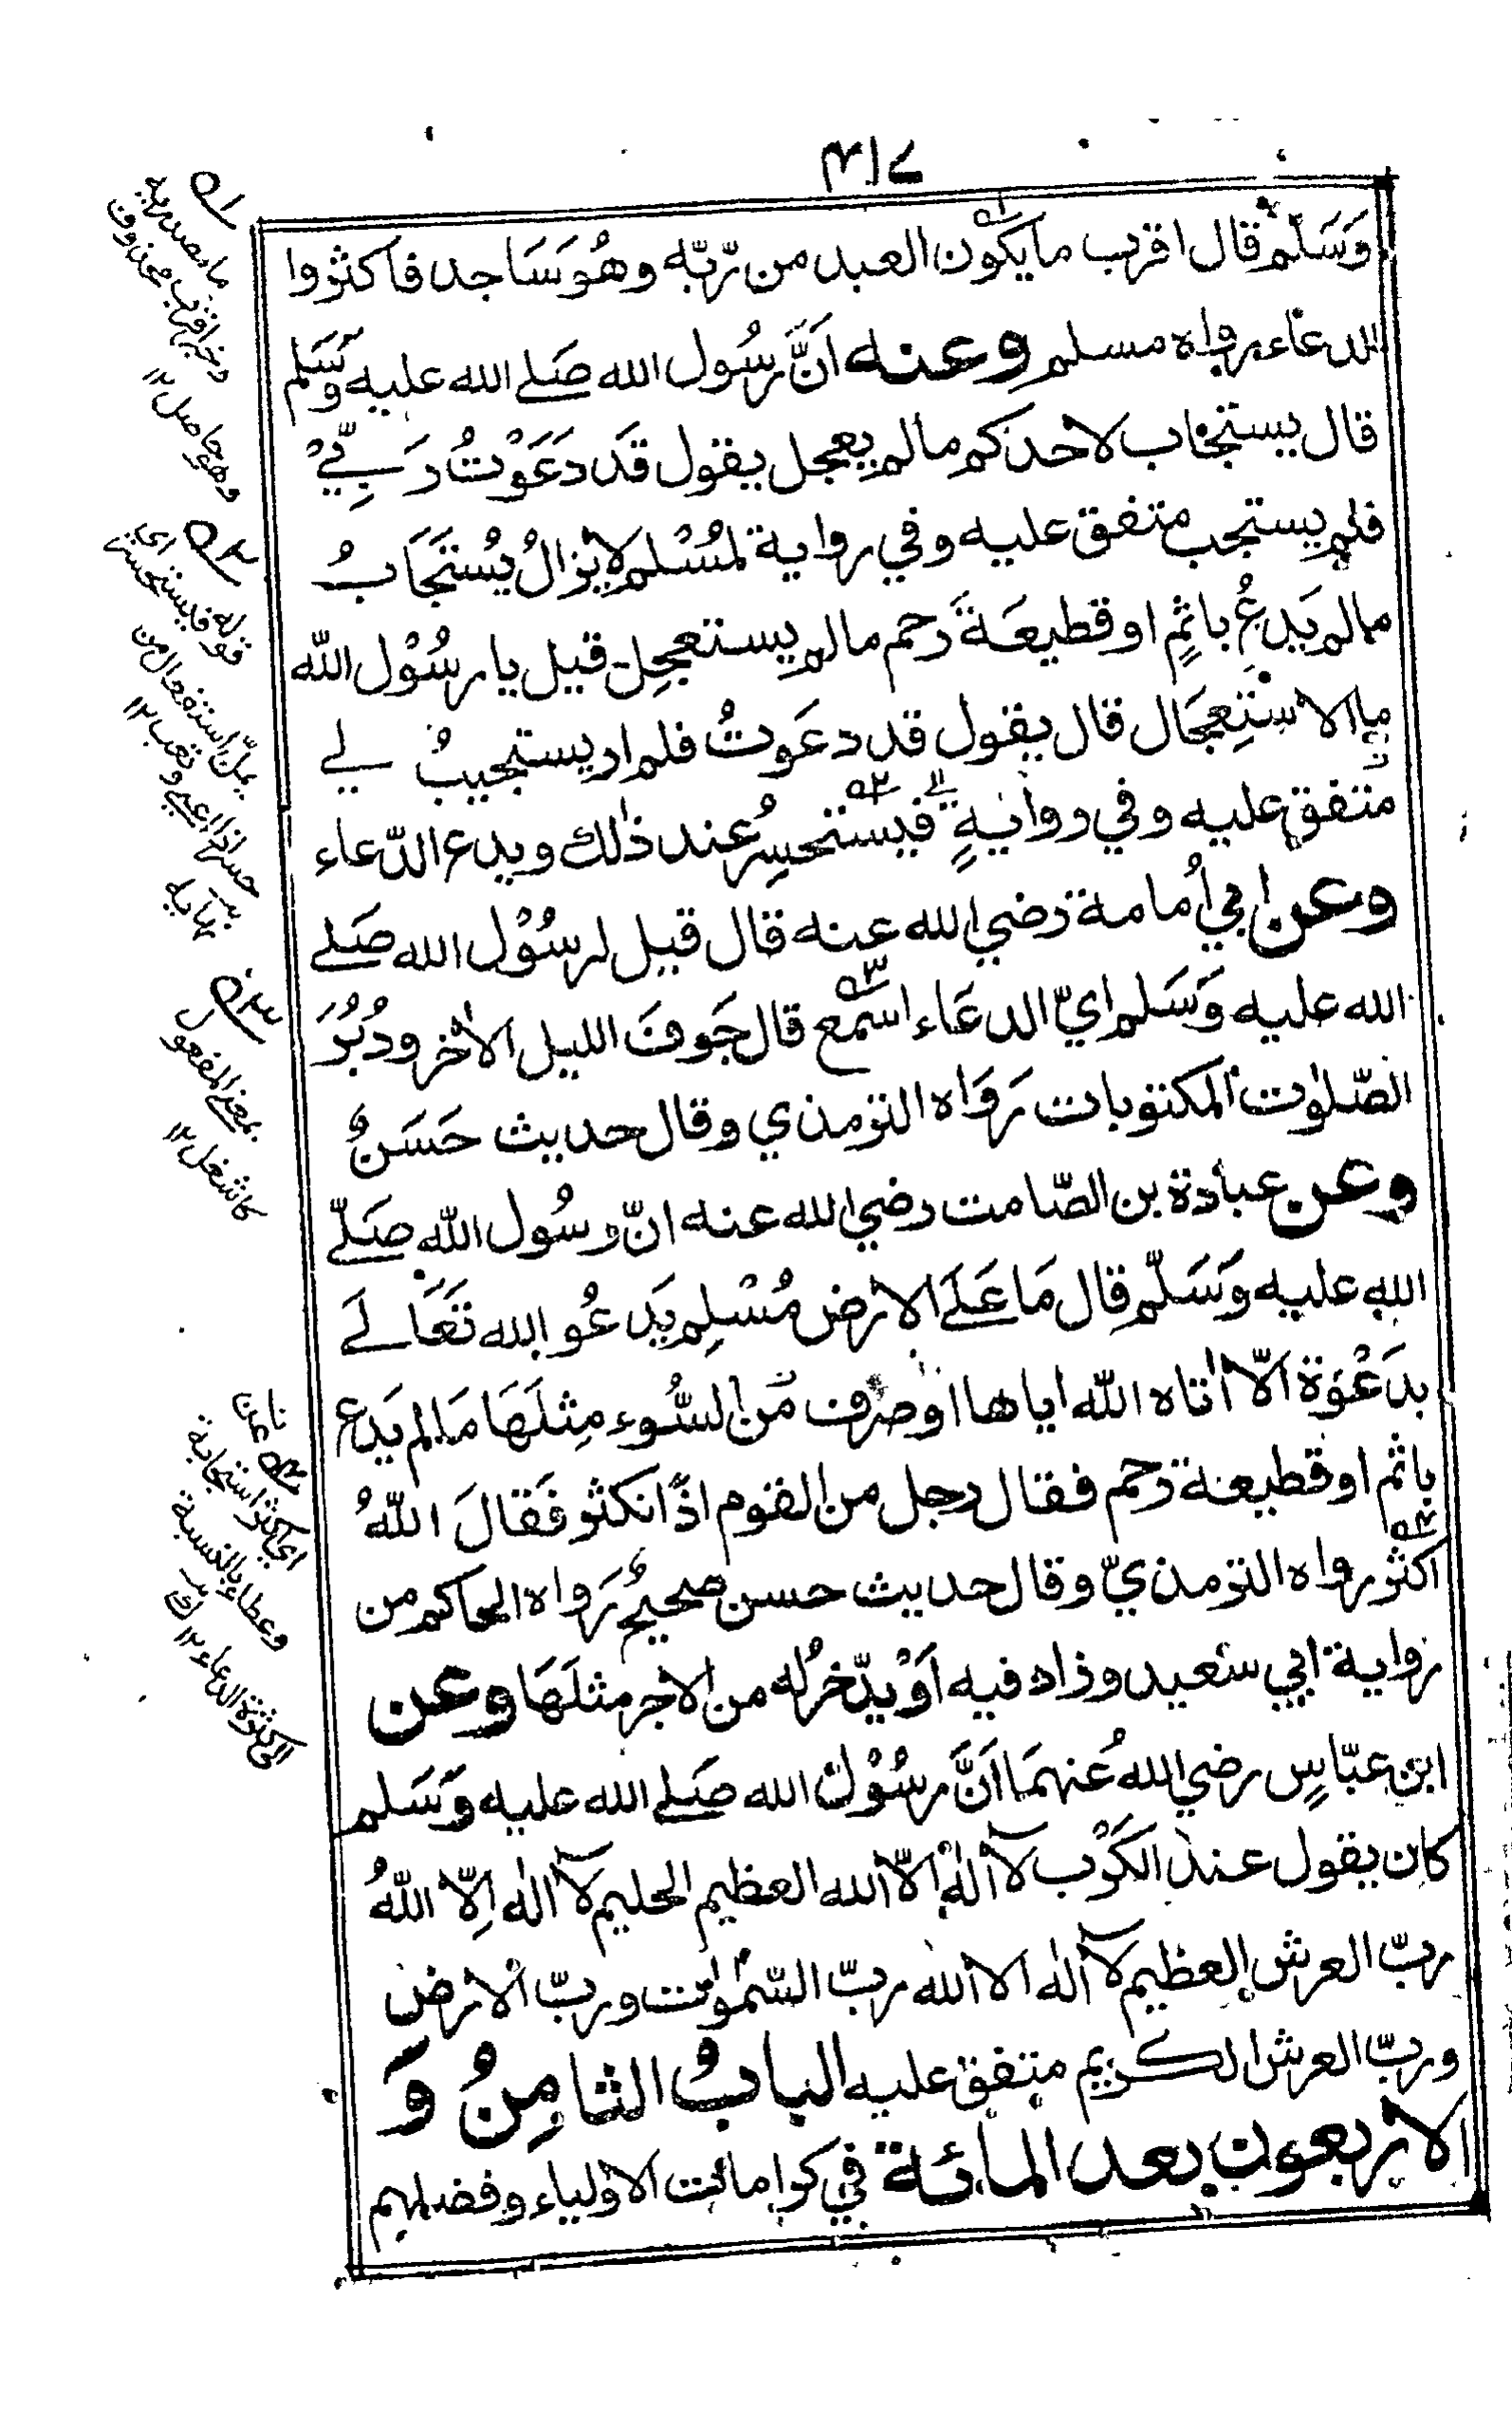 ٤١٧
وَسَلّم قال اقرب ما يكون العبد من رّبّه وهُوَ سَاجد فاكثروا
الدعاء رواه مسلم وعنه انَّ رسُول الله صَلے الله عليه وسَلم
قال يستجاب لاحدكم مالم يعجل يقول قَد دَعَوْتُ رَبِّيْ
فلم يستجب متفق عليه وفي رواية لمُسْلم لا يزالُ يُستَجَابُ
مالم يَدعُ باثمٍ او قطيعَة رَحم مالم يستعجل قيل يا رسُوْل الله
ما الاستِعجَال قال يقول قد دعَوتُ فلم ار يستجيبُ لے
متفق عليه وفي روايةٍ فيستحسِرُ عند ذٰلك ويدع الدّعاء
وعن ابي اُمامة رضي الله عنه قال قيل لرسُوْل الله صَلے
الله عليه وَسَلم ايّ الدعَاء اسْمع قال جَوفَ الليل الاٰخر ودُبُرَ
الصّلوٰت المكتوبات رَوَاه الترمذي وقال حديث حَسَنٌ
وعن عبادة بن الصّامت رضي الله عنه انّ رسُول اللّه صَلّے
الله عليه وَسَلّم قال مَا عَلَے الارض مُسْلِم يَدعُو الله تَعَالَے
بدَعْوَة الّا اٰتاه اللّه اياها او صرف من السُّوء مِثلَهَا مَا لم يَدع
باثم او قطيعة رَحم فقال رجل من القوم اذًا نكثر فَقالَ اللّهُ
اكثر رواه الترمذيّ وقال حديث حسن صحيحٌ رَواه الحاكم من
رواية ابي سَعيد وزاد فيه اَوْ يدّخرُ له من الاجر مثلَهَا وعن
ابن عبّاسٍ رضي اللهُ عُنهمَا اَنَّ رسُوْل الله صَلے الله عليه وَسَلم
كان يقول عند الكَرْب لآ الٰهَ الّا الله العظيم الحليم لآ الٰه اِلّا اللّهُ
ربّ العرش العظيم لآ الٰه الا الله ربّ السّمٰوٰت وربّ الارض
وربّ العرش الكريم متفق عليه البابُ الثامِنُ وَ
الاربعون بعد المائة في كرامات الاولياء وفضلهم
ما مصدرية
وخبر اقرب محذوف
وهو حاصل ١٢
قوله فيستحسر اي
يملّ استفعال من
حسر اذا اعيي وتعب ١٢
نهايه
بمعنى المفعول
كاشغل ١٢
اي اكثر استجابة
وعطاء بالنسبة
الى كثرة الدعاء ١٢